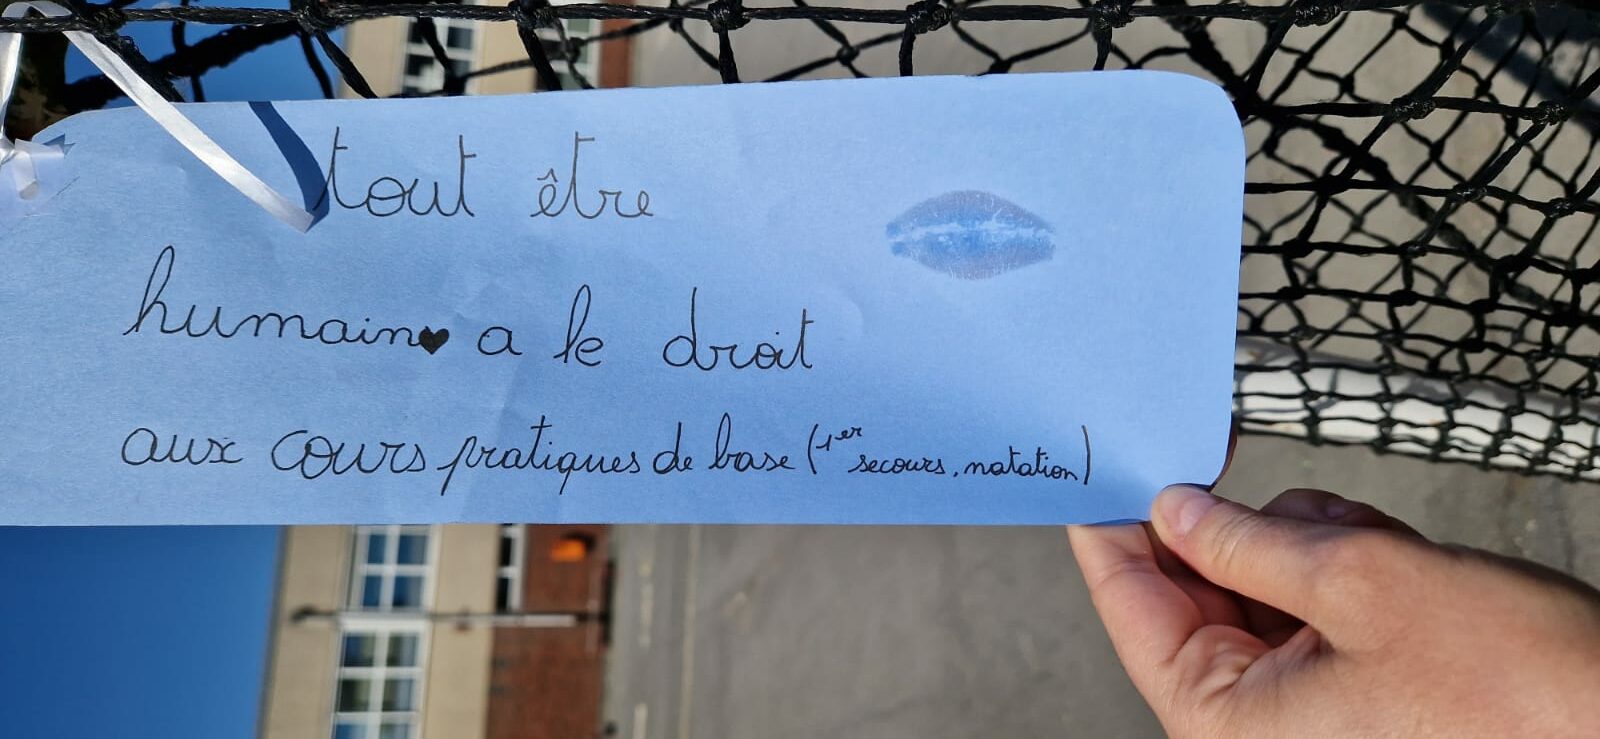 tout être
humain♥ a le droit
aux cours pratiques de base (1er secours, natation)